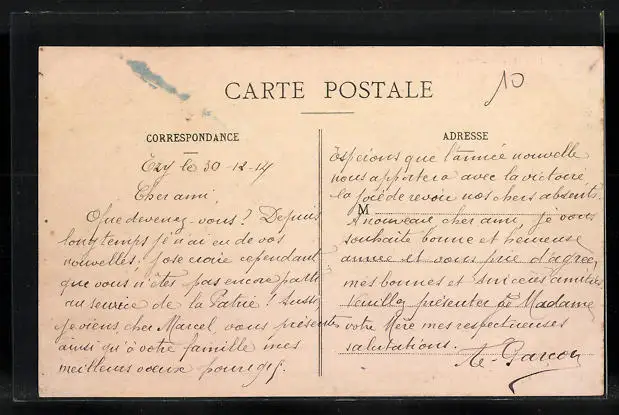 CARTE POSTALE
10
CORRESPONDANCE
Ezy le 30-12-14
Cher ami,
Que devenez-vous? Depuis
longtemps je n'ai eu de vos
nouvelles. J'ose croire cependant
que vous n'êtes pas encore parti
au service de la Patrie! Aussi
je viens, cher Marcel, vous présenter
ainsi qu'à votre famille mes
meilleurs voeux pour 1915.
ADRESSE
Espérons que l'année nouvelle
nous apportera avec la victoire
la joie de revoir nos chers absents.
M
A nouveau cher ami, je vous
souhaite bonne et heureuse
année et vous prie d'agréer
mes bonnes et sincères amitiés
Veuillez présenter à Madame
votre Mère mes respectueuses
salutations.
Garcon